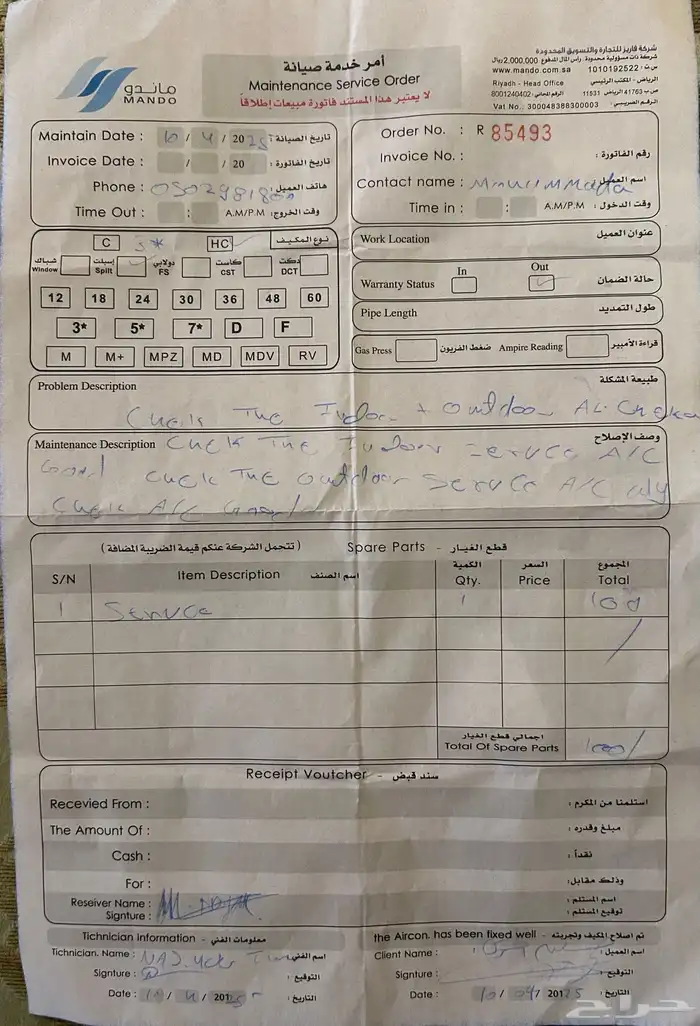 ماندو
MANDO
أمر خدمة صيانة
Maintenance Service Order
لا يعتبر هذا المستند فاتورة مبيعات إطلاقاً
شركة فاريز للتجارة والتسويق المحدودة
شركة ذات مسؤولية محدودة رأس المال المدفوع 2,000,000 ريال
www.mando.com.sa س ت : 1010192522
Riyadh - Head Office الرياض - المكتب الرئيسي
ص ب 41763 الرياض 11531 الرقم المجاني: 8001240402
Vat No. 300048388300003 الرقم الضريبي:
Maintain Date : 10 / 4 / 2025 تاريخ الصيانة :
Invoice Date : / / 20 تاريخ الفاتورة :
Phone : هاتف العميل :
Time Out : : A.M/P.M وقت الخروج :
Order No. : R 85493
Invoice No. : رقم الفاتورة :
Contact name : اسم العميل :
Time in : : A.M/P.M وقت الدخول :
C 3* HC نوع المكيف
شباك Window اسبلت Split دولابي FS كاست CST دكت DCT
12 18 24 30 36 48 60
3* 5* 7* D F
M M+ MPZ MD MDV RV
Work Location عنوان العميل
Warranty Status In Out حالة الضمان
Pipe Length طول التمديد
Gas Press ضغط الفريون Ampire Reading قراءة الأمبير
Problem Description طبيعة المشكلة
Chek The Indoor + outdoor
Maintenance Description وصف الإصلاح
Chek The Indoor Service A/C
Good Chek The outdoor Service A/C
Chek A/C Good
Spare Parts - قطع الغيار (تتحمل الشركة عنكم قيمة الضريبة المضافة)
S/N Item Description اسم الصنف الكمية Qty. السعر Price المجموع Total
1 Service 1 100
اجمالي قطع الغيار
Total Of Spare Parts 100/
Receipt Voutcher - سند قبض
Recevied From : استلمنا من المكرم :
The Amount Of : مبلغ وقدره :
Cash : نقداً :
For : وذلك مقابل:
Reseiver Name : اسم المستلم :
Signture : توقيع المستلم :
Tichnician Information - معلومات الفني
Tichnician. Name : اسم الفني :
Signture : التوقيع :
Date : 10 / 4 / 2025 التاريخ :
the Aircon. has been fixed well - تم اصلاح المكيف وتجربته
Client Name : اسم العميل :
Signture : التوقيع :
Date : 10 / 04 / 2025 التاريخ :
حراج